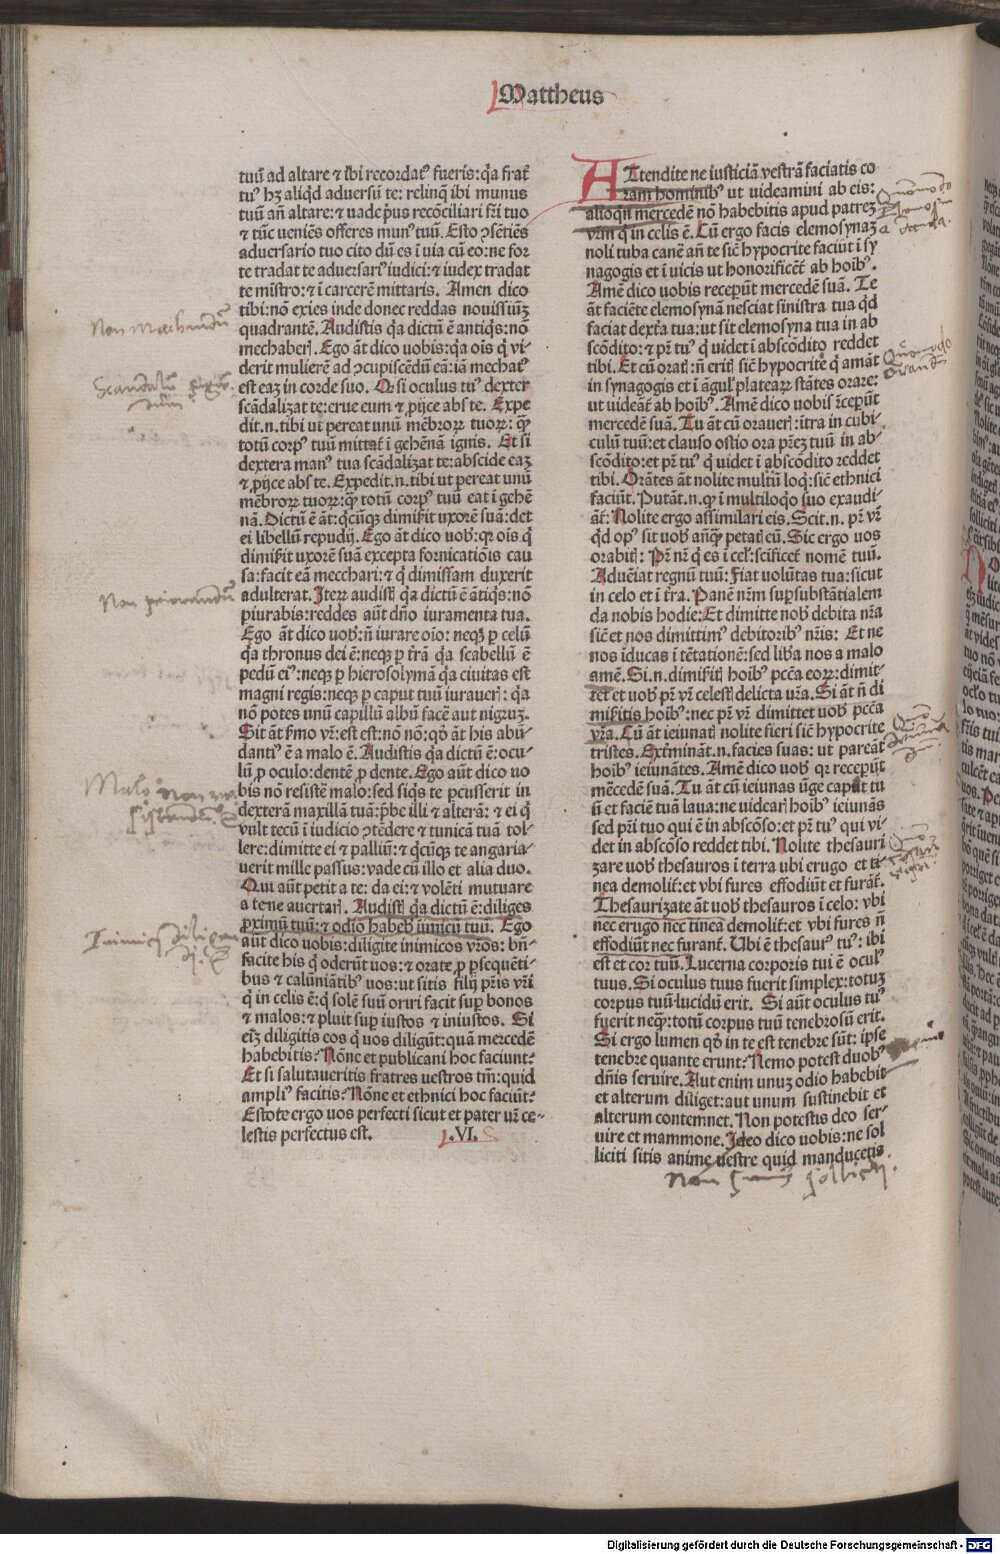 Mattheus
tuū ad altare ⁊ ibi recordat᷒ fueris: q̇a frat̃
tu᷒ hꝫ aliq̇d adversū te: relinq̄ ibi munus
tuū añ altare: ⁊ uade p̄us recōciliari fr̄i tuo
⁊ tūc ueniēs offeres mun᷒ tuū. Esto ↄsētiēs
adversario tuo cito dū es ī uia cū eo: ne for
te tradat te adversari᷒ iudici: ⁊ iudex tradat
te mīstro: ⁊ ī carcerē mittaris. Amen dico
tibi: nō exies inde donec reddas nouissiūꝫ
quadrantē. Audistis q̇a dictū ē antiq̇s: nō
mechaberꝭ. Ego āt dico uobis: q̇a ois q̇ vi-
derit mulierē ad ↄcupiscēdū eā: iā mechat᷒
est eaꝫ in corde suo. Ꝙ si oculus tu᷒ dexter
scādalizat te: erue eum ⁊ ꝓijce abs te. Expe
dit.n. tibi ut pereat unū mēbroꝝ tuoꝝ: q̄ꝫ
totū corp᷒ tuū mittat̃ ī gehēnā ignis. Et si
dextera man᷒ tua scādalizat te: abscide eaꝫ
⁊ ꝓijce abs te. Expedit.n. tibi ut pereat unū
mēbroꝝ tuoꝝ: q̄ꝫ totū corp᷒ tuū eat ī gehē
nā. Dictū ē āt: q̇cūqꝫ dimiẜit uxorē suā: det
ei libellū repudij. Ego āt dico uob̄: qꝛ ois q̇
dimiẜit uxorē suā excepta fornicatiōis cau
sa: facit eā mecchari: ⁊ q̇ dimissam duxerit
adulterat. Iteꝝ audistꝭ q̇a dictū ē ātiq̇s: nō
piurabis: reddes aūt dño iuramenta tua.
Ego āt dico uob̄: ñ iurare oīo: neqꝫ ꝑ celū
q̇a thronus dei ē: neqꝫ ꝑ t̃rā q̇a scabellū ē
pedū ei᷒: neqꝫ ꝑ hierosolymā q̇a ciuitas est
magni regis: neqꝫ ꝑ caput tuū iurauerꝭ: q̇a
nō potes unū capillū albū facē aut nigruꝫ.
Sit āt ẜmo vr̄: est est: nō nō: qḋ āt his abū-
danti᷒ ē a malo ē. Audistis q̇a dictū ē: ocu-
lū ꝓ oculo: dentē ꝓ dente. Ego aūt dico uo
bis nō resistē malo: sed siq̇s te ꝑcusserit in
dexterā maxillā tuā: p̄be illi ⁊ alterā: ⁊ ei q̇
vult tecū ī iudicio ↄtēdere ⁊ tunicā tuā tol-
lere: dimitte ei ⁊ palliū: ⁊ q̇cūqꝫ te angaria-
uerit mille passus: vade cū illo et alia duo.
Qui aūt petit a te: da ei: ⁊ volēti mutuare
a te ne auertarꝭ. Audistꝭ q̇a dictū ē: diliges
ꝓximū tuū: ⁊ odio habeb̄ inīcū tuū. Ego
aūt dico uobis: diligite inimicos vr̄os: bñ-
facite his q̇ oderūt uos: ⁊ orate ꝓ ꝑsequēti-
bus ⁊ calūniātib᷒ uos: ut sitis filij pr̄is vr̄i
q̇ in celis ē: q̇ solē suū oriri facit suꝑ bonos
⁊ malos: ⁊ pluit suꝑ iustos ⁊ iniustos. Si
eīꝫ diligitis eos q̇ uos diligūt: quā mercedē
habebitis? Nōne et publicani hoc faciunt?
Et si salutaueritis fratres uestros tm̄: quid
ampli᷒ facitis? Nōne et ethnici hoc faciūt?
Estote ergo uos perfecti sicut et pater ur̄ ce-
lestis perfectus est. .VI.
ATtendite ne iusticiā vestrā faciatis co
ram hominib᷒ ut uideamini ab eis:
alioq̇n mercedē nō habebitis apud patreꝫ
vr̄m q̇ in celis ē. Cū ergo facis elemosynaꝫ
noli tuba canē añ te sic̄ hypocrite faciūt ī sy
nagogis et ī uicis ut honorificēt̃ ab hoib᷒.
Amē dico uobis recepūt mercedē suā. Te
āt faciēte elemosynā nesciat sinistra tua q̇d
faciat dext̃a tua: ut sit elemosyna tua in ab
scōdito: ⁊ pr̄ tu᷒ q̇ uidet ī abscōdito reddet
tibi. Et cū oratꝭ: ñ eritꝭ sic̄ hypocrite q̇ amāt
in synagogis et ī āgulꝭ plateaꝝ stātes orare:
ut uideāt̃ ab hoib᷒. Amē dico uobis receꝑūt
mercedē suā. Tu āt cū oraverꝭ: ītra in cubi-
culū tuū: et clauso ostio ora pr̄eꝫ tuū in ab-
scōdito: et pr̄ tu᷒ q̇ uidet ī abscōdito reddet
tibi. Orātes āt nolite multū loq̇: sic̄ ethnici
faciūt. Putāt.n. qꝙ ī multiloq̇o suo exaudi-
āt̃: Nolite ergo assimilari eis. Scit.n. pr̄ vr̄
q̇d op᷒ sit uob̄ añq̄ꝫ petatꝭ eū. Sic ergo uos
orabitꝭ: Pr̄ nr̄ q̇ es ī celꝭ: scificet̃ nomē tuū.
Aduēiat regnū tuū: Fiat uolūtas tua: sicut
in celo et ī t̃ra. Panē nr̄m suꝑsubstātialem
da nobis hodie: Et dimitte nob̄ debita nr̄a
sic̄ et nos dimittim᷒ debitorib᷒ nr̄is: Et ne
nos īducas ī tētationē: sed liƀa nos a malo
amē. Si.n. dimiẜitꝭ hoib᷒ pctā eoꝝ: dimit-
tet et uob̄ pr̄ vr̄ celestꝭ delicta ur̄a. Si āt ñ di
miẜitis hoib᷒: nec pr̄ vr̄ dimittet uob̄ pctā
vr̄a. Cū āt ieiunatꝭ nolite fieri sic̄ hypocrite
tristes. Ext̃mināt.n. facies suas: ut pareāt
hoib᷒ ieiunātes. Amē dico uob̄ qꝛ recepūt
mēcedē suā. Tu āt cū ieiunas ūge caput tu
ū et faciē tuā laua: ne uidearꝭ hoib᷒ ieiunās
sed pr̄i tuo qui ē in abscōso: et pr̄ tu᷒ qui vi-
det in abscōso reddet tibi. Nolite thesauri
zare uob̄ thesauros ī terra ubi erugo et ti
nea demolit̃: et vbi fures effodiūt et furāt̃.
Thesaurizate āt uob̄ thesauros ī celo: vbi
nec erugo nec tinea demolit̃: et vbi fures ñ
effodiūt nec furant̃. Ubi ē thesaur᷒ tu᷒: ibi
est et cor tuū. Lucerna corporis tui ē ocul᷒
tuus. Si oculus tuus fuerit simplex: totuꝫ
corpus tuū lucidū erit. Si aūt oculus tu᷒
fuerit neqꝫ: totū corpus tuū tenebrosū erit.
Si ergo lumen qḋ in te est tenebre sūt: ipse
tenebre quante erunt? Nemo potest duob᷒
dñis seruire. Aut enim unuꝫ odio habebit
et alterum diliget: aut unum sustinebit et
alterum contemnet. Non potestis deo ser-
uire et mammone. Ideo dico uobis: ne sol
liciti sitis anime uestre quid manducetis.
Non Mechandū
Scandalū
Non peierandū
Malo non re
sistendū
Inimicos diligen
Digitalisierung gefördert durch die Deutsche Forschungsgemeinschaft - DFG